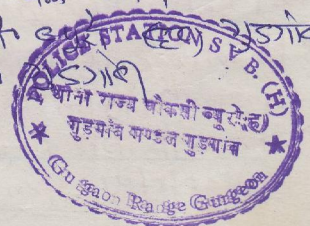 POLICE STATION S.V.B. (H)
थाना राज्य चौकसी ब्यूरो(ह)
गुड़गांव मण्डल गुड़गांव
Gurgaon Range Gurgaon